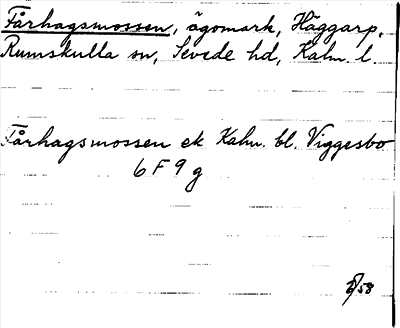 Fårhagsmossen, ägomark, Häggarp,
Rumskulla sn, Sevede hd, Kalm. l.
Fårhagsmossen ek. Kalm. bl. Viggesbo
6 F 9 g